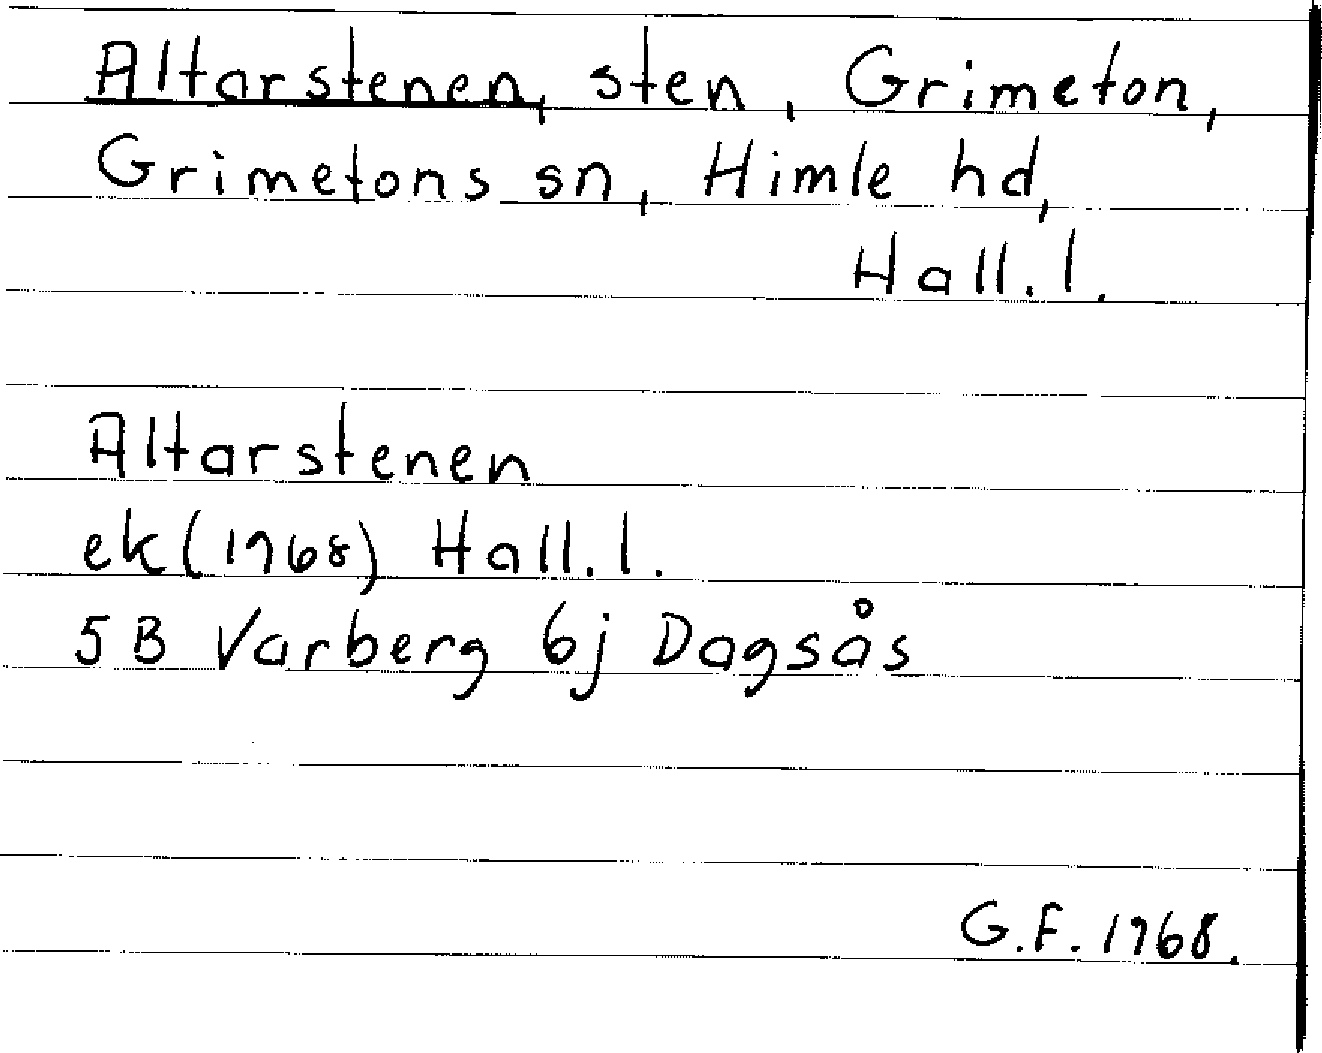 Altarstenen, sten, Grimeton,
Grimetons sn, Himle hd,
Hall. l.
Altarstenen
ek (1968) Hall. l.
5B Varberg 6j Dagsås
G.F. 1968.